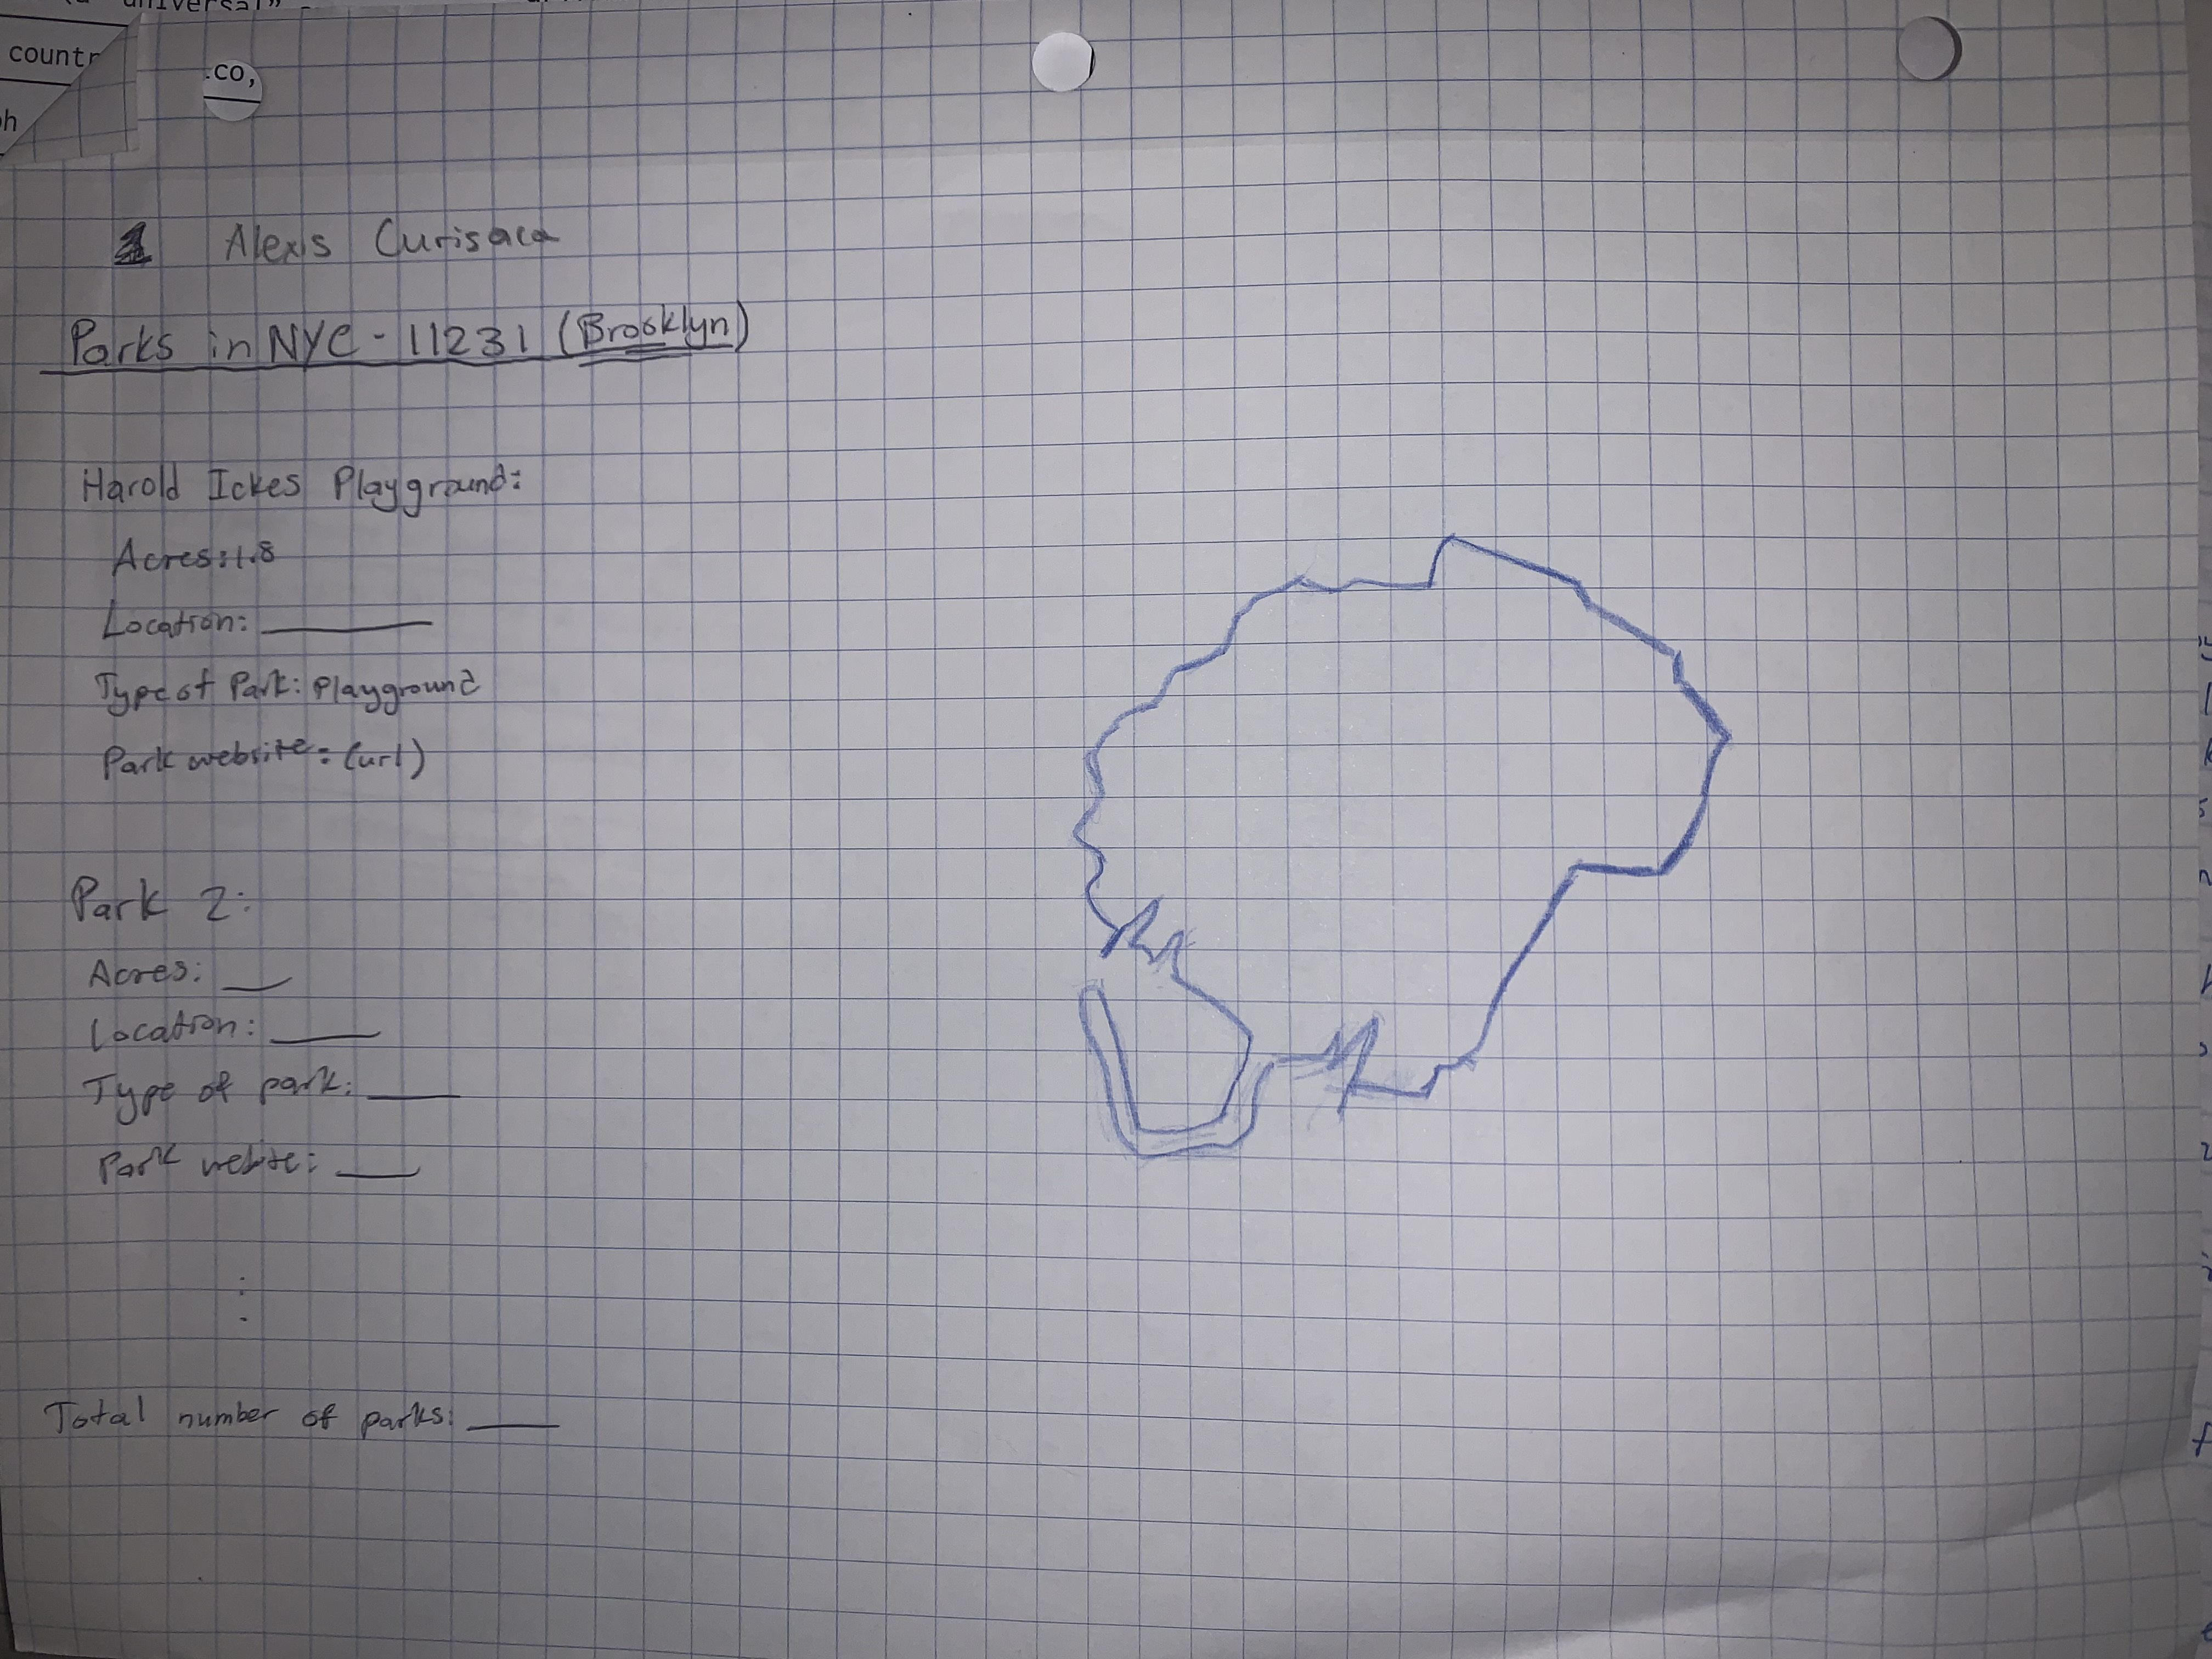 Alexis Curisaca
Parks in NYC - 11231 (Brooklyn)
Harold Ickes Playground:
Acres: 1.8
Location: ____
Type of Park: Playground
Park website: (url)
Park 2:
Acres: __
Location: ___
Type of park: ___
Park webite: __
Total number of parks: ___
countr
.co,